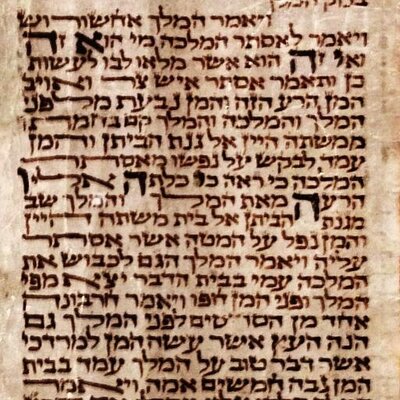 בנזק המלך
ויאמר המלך אחשורוש
ויאמר לאסתר המלכה מי הוא זה
ואי זה הוא אשר מלאו לבו לעשות
כן ותאמר אסתר איש צר ואויב
המן הרע הזה והמן נבעת מלפני
המלך והמלכה והמלך קם בחמתו
ממשתה היין אל גנת הביתן והמן
עמד לבקש על נפשו מאסתר
המלכה כי ראה כי כלתה אליו
הרעה מאת המלך והמלך שב
מגנת הביתן אל בית משתה היין
והמן נפל על המטה אשר אסתר
עליה ויאמר המלך הגם לכבוש את
המלכה עמי בבית הדבר יצא מפי
המלך ופני המן חפו ויאמר חרבונה
אחד מן הסריסים לפני המלך גם
הנה העץ אשר עשה המן למרדכי
אשר דבר טוב על המלך עמד בבית
המן גבה חמשים אמה ויאמר